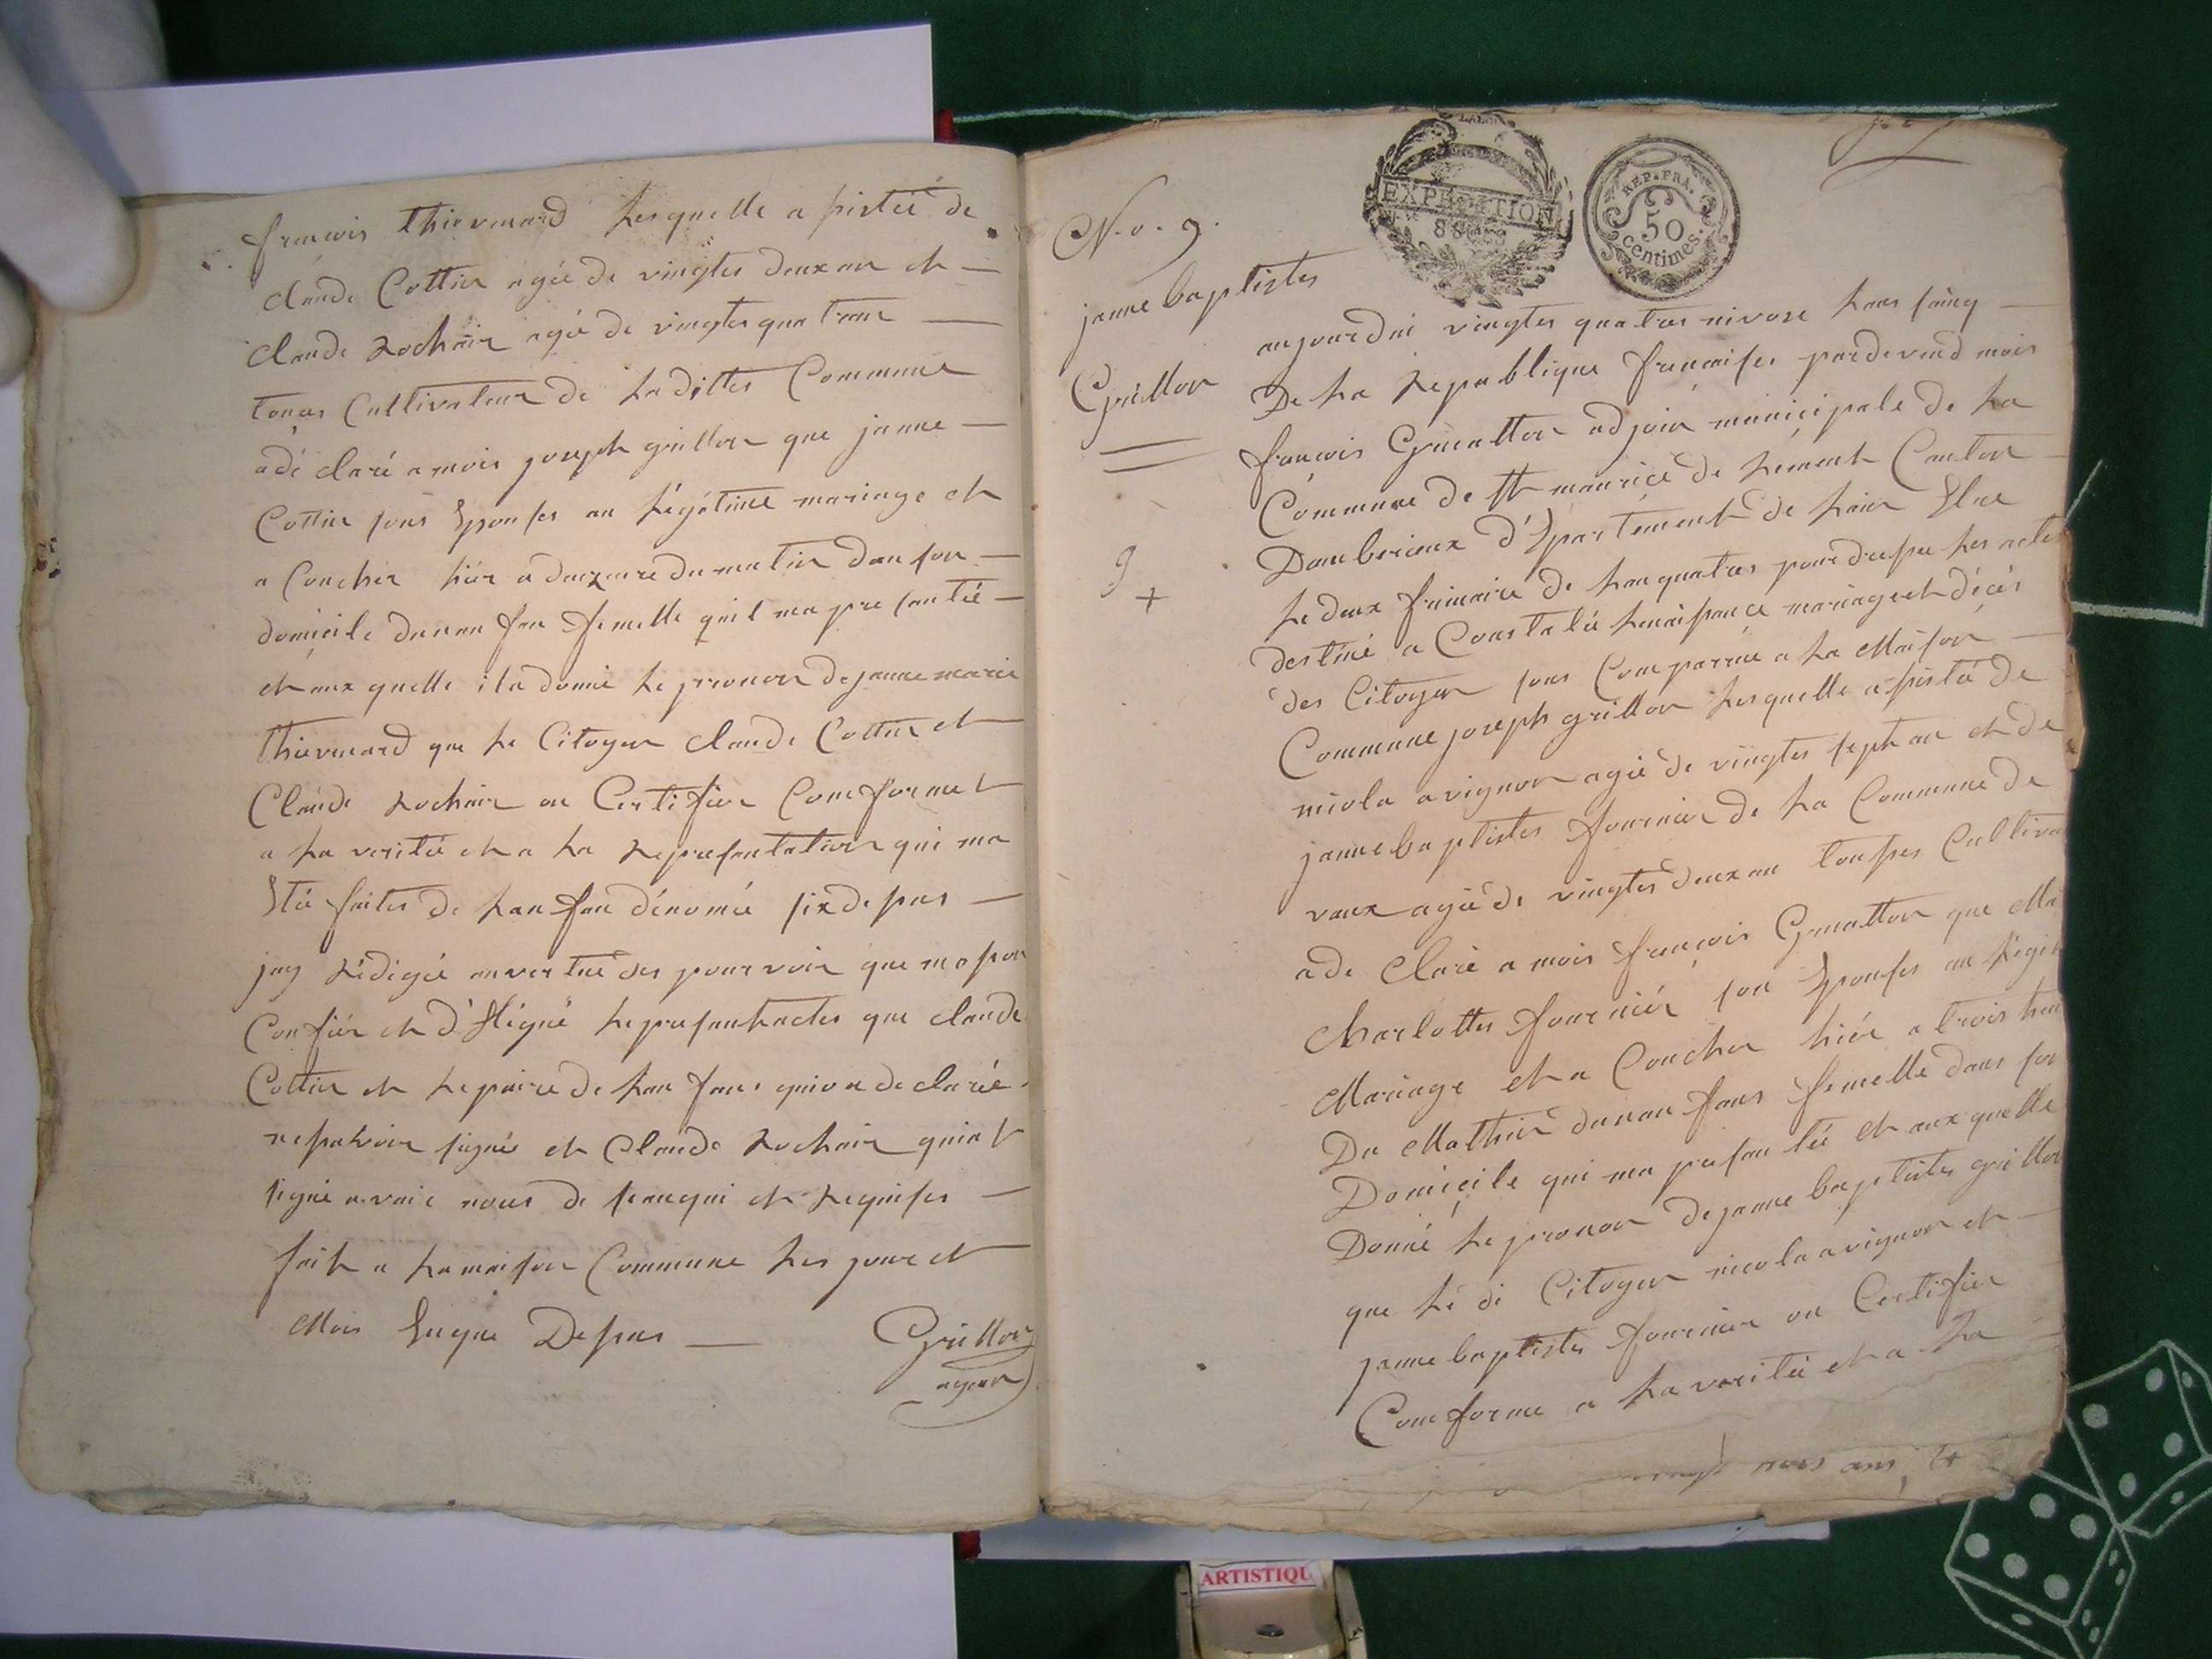 francois thievenard Lesquelle a sistée de
claude Cottin agée de vingtes deux an et
claude Rochair agé de vingtes quatran
tonas Cultivateur de Laditter Commune
a dé claré a mois joseph grillon que janne
Cottin sons Epouses an Légétime mariage et
a Coucher hiér a deuxeure du matin dan son
domicile dunan fan femelle quil ma pre santée
et aux quelle ila donné Le pronon de janne marie
thievenard que Le Citoyen claude Cottin et
Claude Rochair on Certifier Comformet
a La verité et a La Represantation qui ma
Etée faites de Lan fan dénomée six de sus
jay Rédigée anvertue des pourvoir que me son
Confiér et d'Eligué Lepresantactes que claude
Cottin et Lepaire de Lan fans quion declarée
nesavoir signée et Claude Rochair quiat
signé avaic nous de seanqui et Requises
fait a Lamaison Commune Les jour et
Mois Euque Desus
Grillon
agent
N.o. 9.
janne baptistes
Grillon
9
+
EXPEDITION
REP. FRA.
50
centimes.
aujourdui vingtes quatres nivose Lans sainq
De La Republique francaises pardevend mois
francois Gruatton adjoin municipale de La
Commune de St maurice de Rément Canton
Dambérieux d'Epartement de Lain Elue
Le deux frimaire de Lanquatres pourdresser Les actes
destiné a Constatée Lenaissance mariage et décés
des Citoyen sons Comparrue a La Maison
Commune joseph grillon Lesquelle a sistée de
nicola avignon agée de vingtes sept an et de
janne baptistes fournier de La Commune de
vaux agée de vingtes deux an tousses Cultiva
a de claré a mois françois Gruatton que Ma
Charlottes fourniér son Epouses an Légit
Mariage et a Coucher hiér a trois heu
Du Mathin dunan fans femelle dans son
Domicile qui ma presan tée et aux quelle
Donné Le pronon de janne baptistes grillon
que Lé di Citoyen nicola avignon et
janne baptistes fournier on Certifier
Comforme a La veritée et a La
vingt trois ans, et
ARTISTIQU